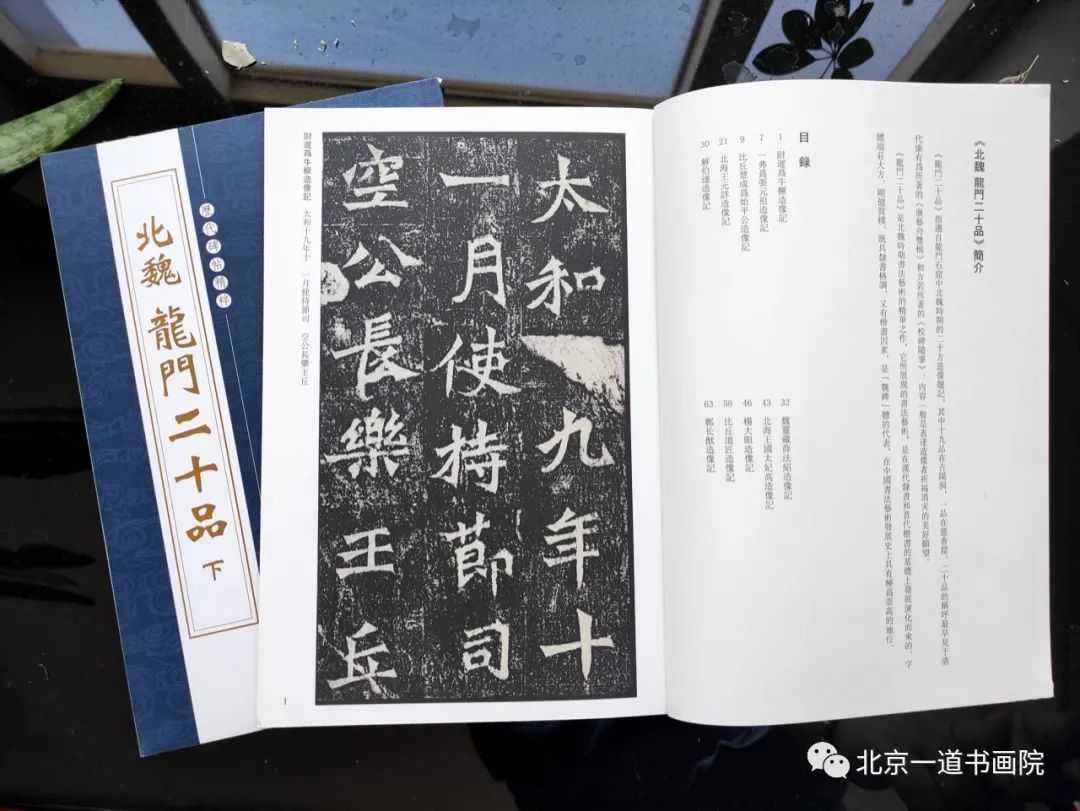 歷代碑帖精粹
北魏 龍門二十品 下
《北魏 龍門二十品》簡介
《龍門二十品》指選自龍門石窟中北魏時期的二十方造像題記，其中十九品在古陽洞，一品在慈香窟。二十品的稱呼最早見于清
代康有爲所著的《廣藝舟雙楫》和方若所著的《校碑隨筆》。内容一般是表達造像者祈福消灾的美好願望。
《龍門二十品》是北魏時期書法藝術的精華之作，它所展現的書法藝術，是在漢代隸書和晋代楷書的基礎上發展演化而來的，字
體端莊大方、剛健質樸，既具隸書格調，又有楷書因素，是「魏碑」體的代表，在中國書法藝術發展史上具有極爲崇高的地位。
目録
1 尉遲爲牛橛造像記
7 一弗爲張元祖造像記
9 比丘慧成爲始平公造像記
21 北海王元詳造像記
30 解伯達造像記
32 魏靈藏薛法紹造像記
43 北海王國太妃高造像記
46 楊大眼造像記
58 比丘道匠造像記
63 鄭长猷造像記
太和 九年十
一月使持節司
空公長樂王丘
尉遲爲牛橛造像記 太和十九年十 一月使持節司 空公長樂王丘
1
北京一道书画院